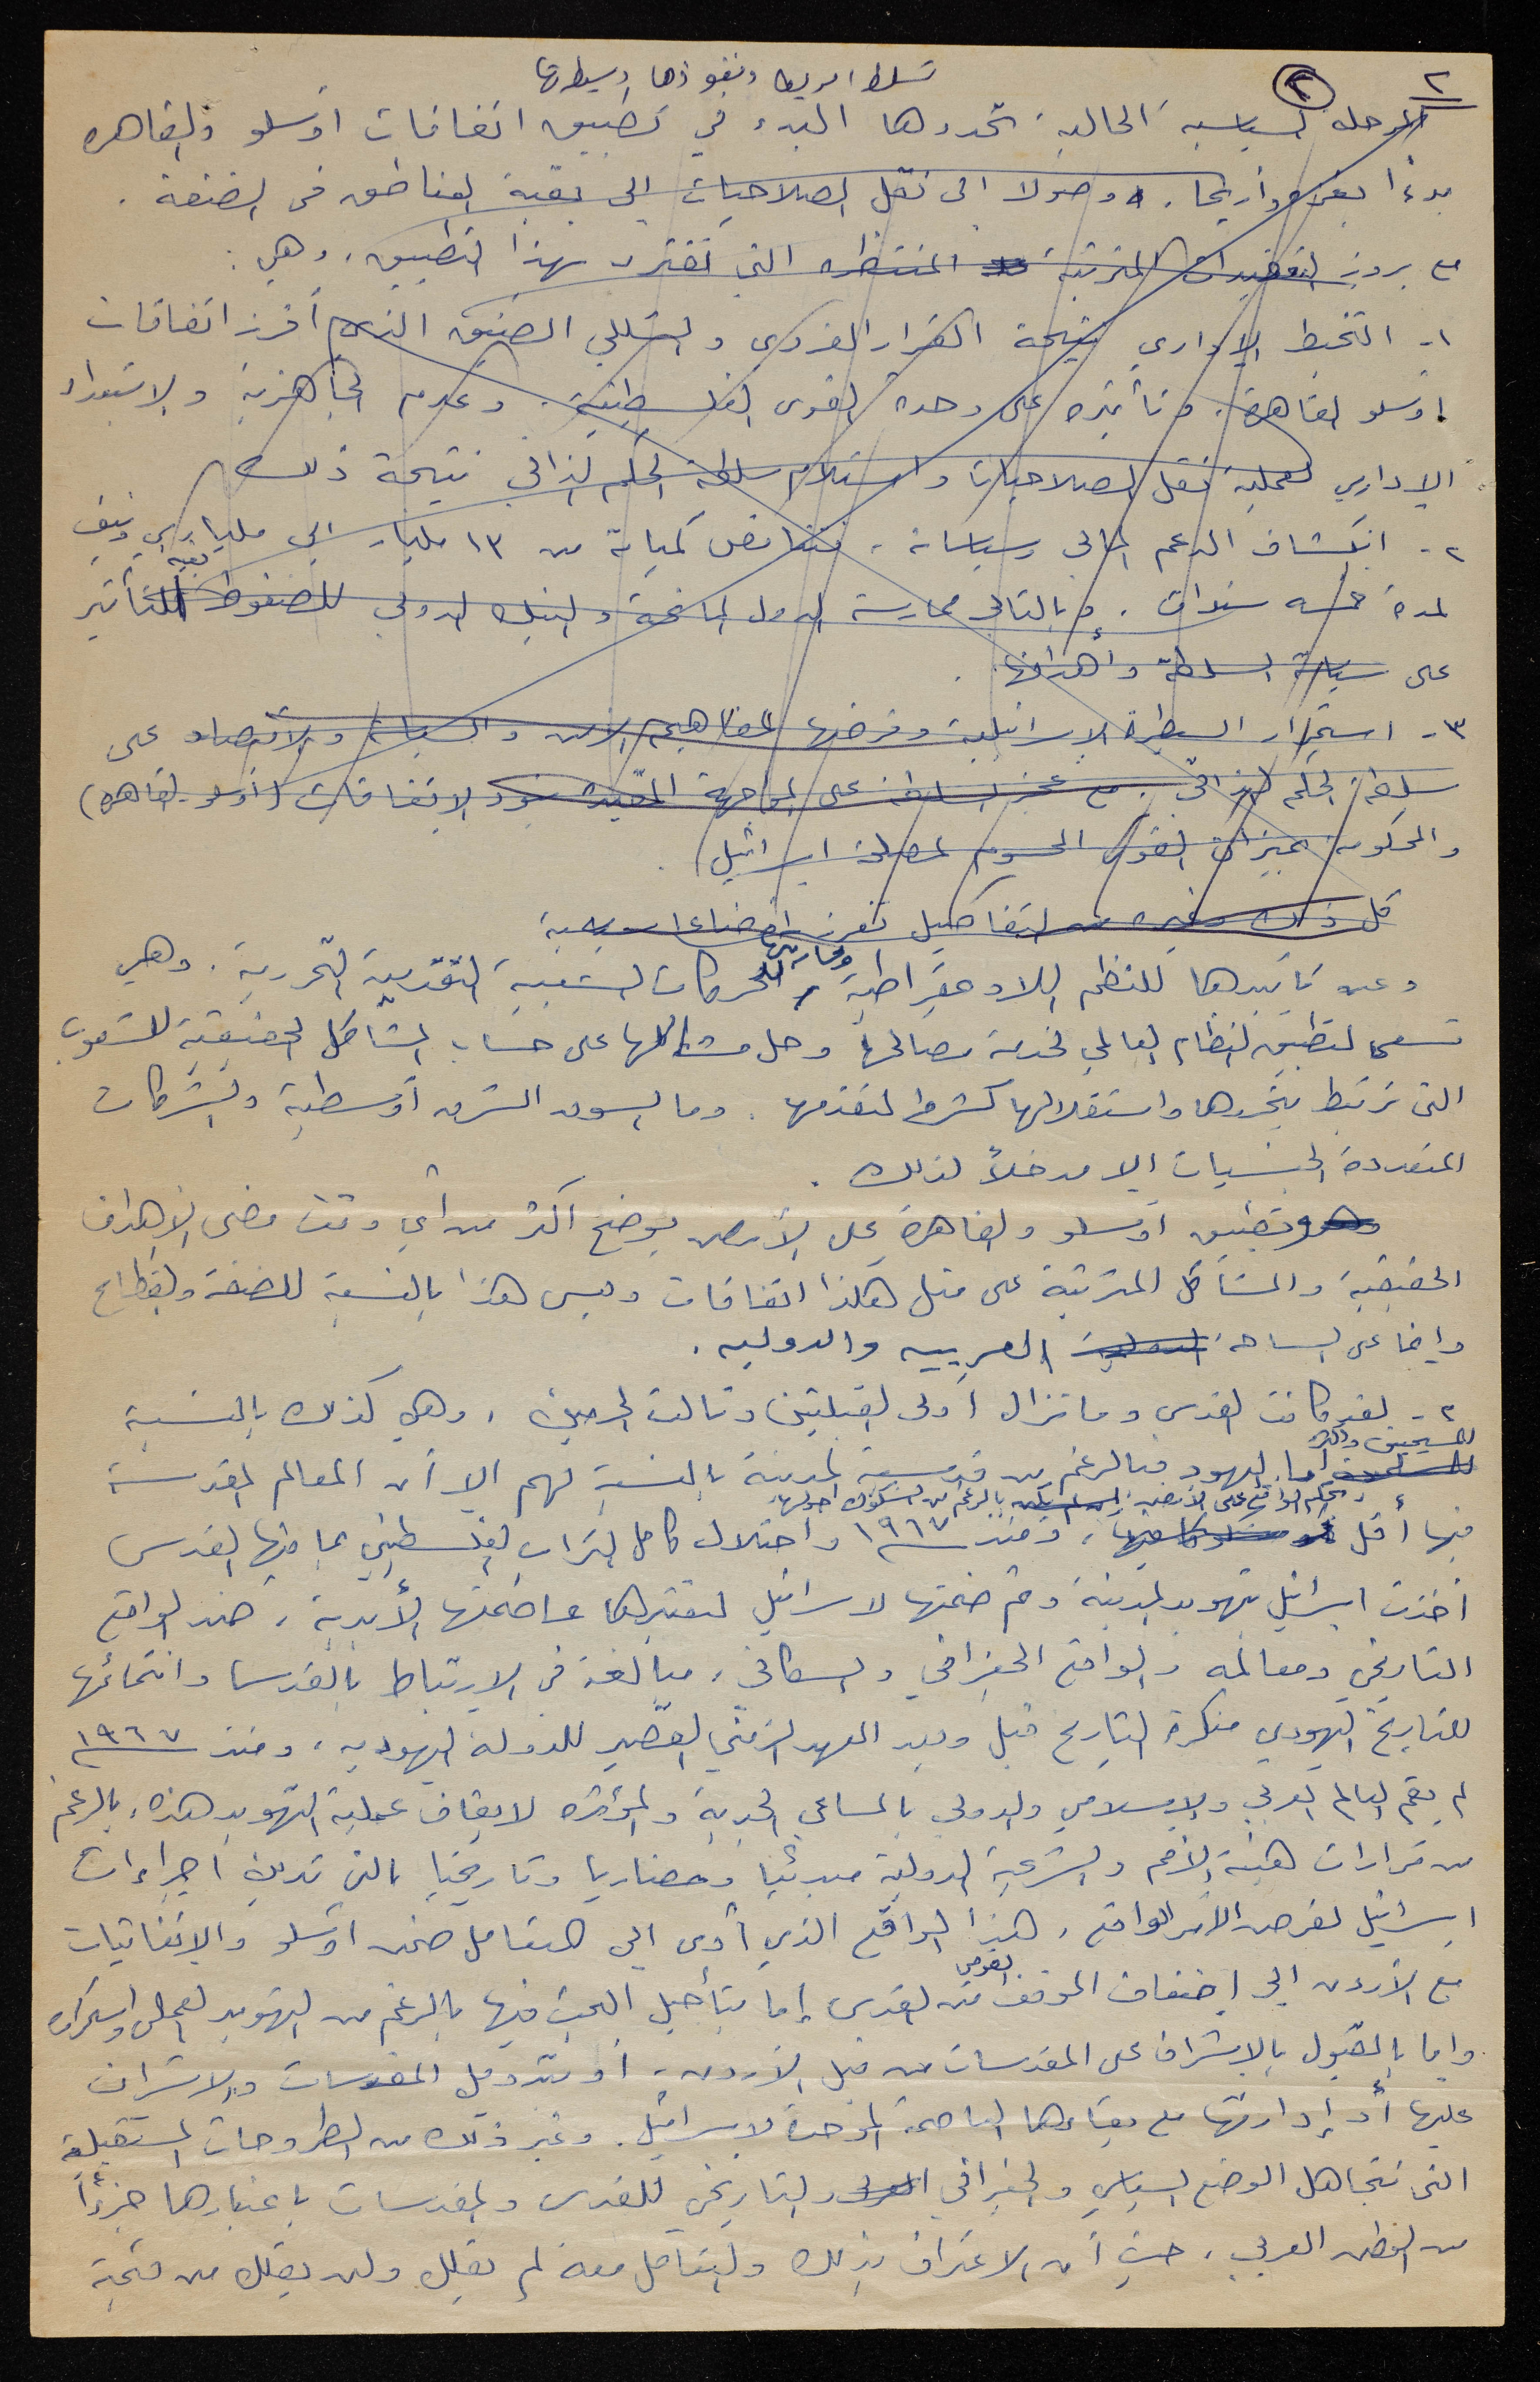 ٢
٢
تسلط امريكا ونفوذها وسيطرتها
المرحله السياسيه الحالية، تحددها البدء في تطبيق اتفاقات أوسلو والقاهره
بدءاً بغزه وأريحا. وصولا الى نقل الصلاحيات إلى بقية المناطق في الضفة.
مع بروز التعقيدات المترتبة المنتظره التي تقترن بهذا التطبيق، وهي:
١- التخبط الإداري نتيجة القرار الفردي والشللي الضيق الذي أفرز اتفاقات
أوسلو القاهرة، وتأثيره على وحدة القوى الفلسطينية. وعدم الجاهزية والاستعداد
الإداري لعملية نقل الصلاحيات واستلام سلطة الحكم الذاتي نتيجة ذلك
٢- انكشاف الدعم المالي وسياساته، فتناقص كمياته من ١٣ مليار إلى مليارين ونيف
لمدة خمسه سنوات. وبالتالي ممارسة الدول المانحة والبنك الدولي للضغوط بغية التأثير
على سياسة السلطة وأهدافها.
٣- استمرار السيطرة الإسرائيلية وفرضها لمفاهيم الأمن والسياسة والاقتصاد على
سلطة الحكم الذاتي. مع عجز السلطة على المواجهة المقيده ببنود الاتفاقات (أوسلو-القاهره)
والمحكومة بميزان القوى المحسوم لمصلحة اسرائيل.
كل ذلك وغيره من التفاصيل تفرز أوضاعا
وعبر تأييدها للنظم اللاديمقراطية ومحاربتها للحركات الشعبية التقدمية التحررية. وهي
تسعى لتطبيق النظام العالمي لخدمة مصالحها وحل مشاكلها على حساب المشاكل الحقيقية للشعوب
التي ترتبط بتحررها واستقلالها كشرط لتقدمها. وما السوق الشرق أوسطية والشركات
المتعددة الجنسيات إلا مدخلاً لذلك.
وتطبيق أوسلو والقاهرة على الأرض يوضح أكثر من أي وقت مضى الأهداف
الحقيقية والمشاكل المترتبة على مثل هكذا اتفاقات وليس هذا بالنسبة للضفة والقطاع
وإنما على الساحة العربيه والدوليه.
٢- لقد كانت القدس وما تزال أولى القبلتين وثالث الحرمين، وهي كذلك بالنسبة
للمسيحيين
أما اليهود فبالرغم من قدسية المدينة بالنسبة لهم إلا أن المعالم المقدسة
بحكم الواقع على الأرض بالرغم من
فيها أقل، ومنذ سنة ١٩٦٧ واحتلال كامل التراب الفلسطيني بما فيها القدس
أخذت إسرائيل بتهويد المدينة وتم ضمها لاسرائيل لتعتبرها عاصمتها الأبدية، ضد الواقع
التاريخي ومعالمه والواقع الجغرافي والسكاني، مبالغة في الارتباط بالقدس وانتمائها
للتاريخ اليهودي منكرة التاريخ قبل وبعد العهد الزمني القصير للدولة اليهودية، ومنذ سنة ١٩٦٧
لم يقم العالم العربي والإسلامي والدولي بالمساعي الجدية والمؤثره لإيقاف عملية التهويد هذه، بالرغم
من قرارات هيئة الأمم والشرعية الدولية مبدئيا وحضاريا وتاريخيا التي تدين إجراءات
إسرائيل لفرض الأمر الواقع، هذا الواقع الذي أدى إلى التعامل ضمن أوسلو والاتفاقيات
مع الأردن إلى إضعاف الموقف القومي من القدس إما بتأجيل البحث فيها بالرغم من التهويد العملي واستمراره
وإما بالقبول بالإشراف على المقدسات من قبل الأردن، أو بتدويل المقدسات والإشراف
عليها أو إدارتها مع بقاءها العاصمة الموحدة لاسرائيل. وغير ذلك من الطروحات المستقبلية
التي تتجاهل الوضع السياسي والجغرافي والتاريخي للقدس والمقدسات باعتبارها جزءاً
من الوطن العربي، حيث أن الاعتراف بذلك والتعامل معه لم يقلل ولن يقلل من قيمة